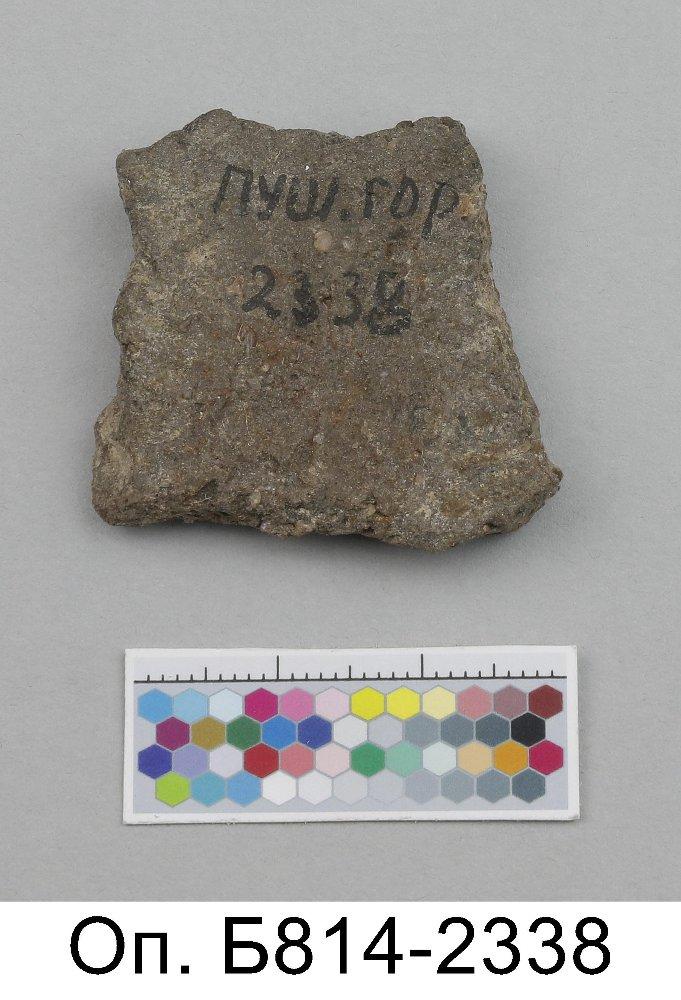 ПУШ.ГОР
2338
Оп. Б814-2338